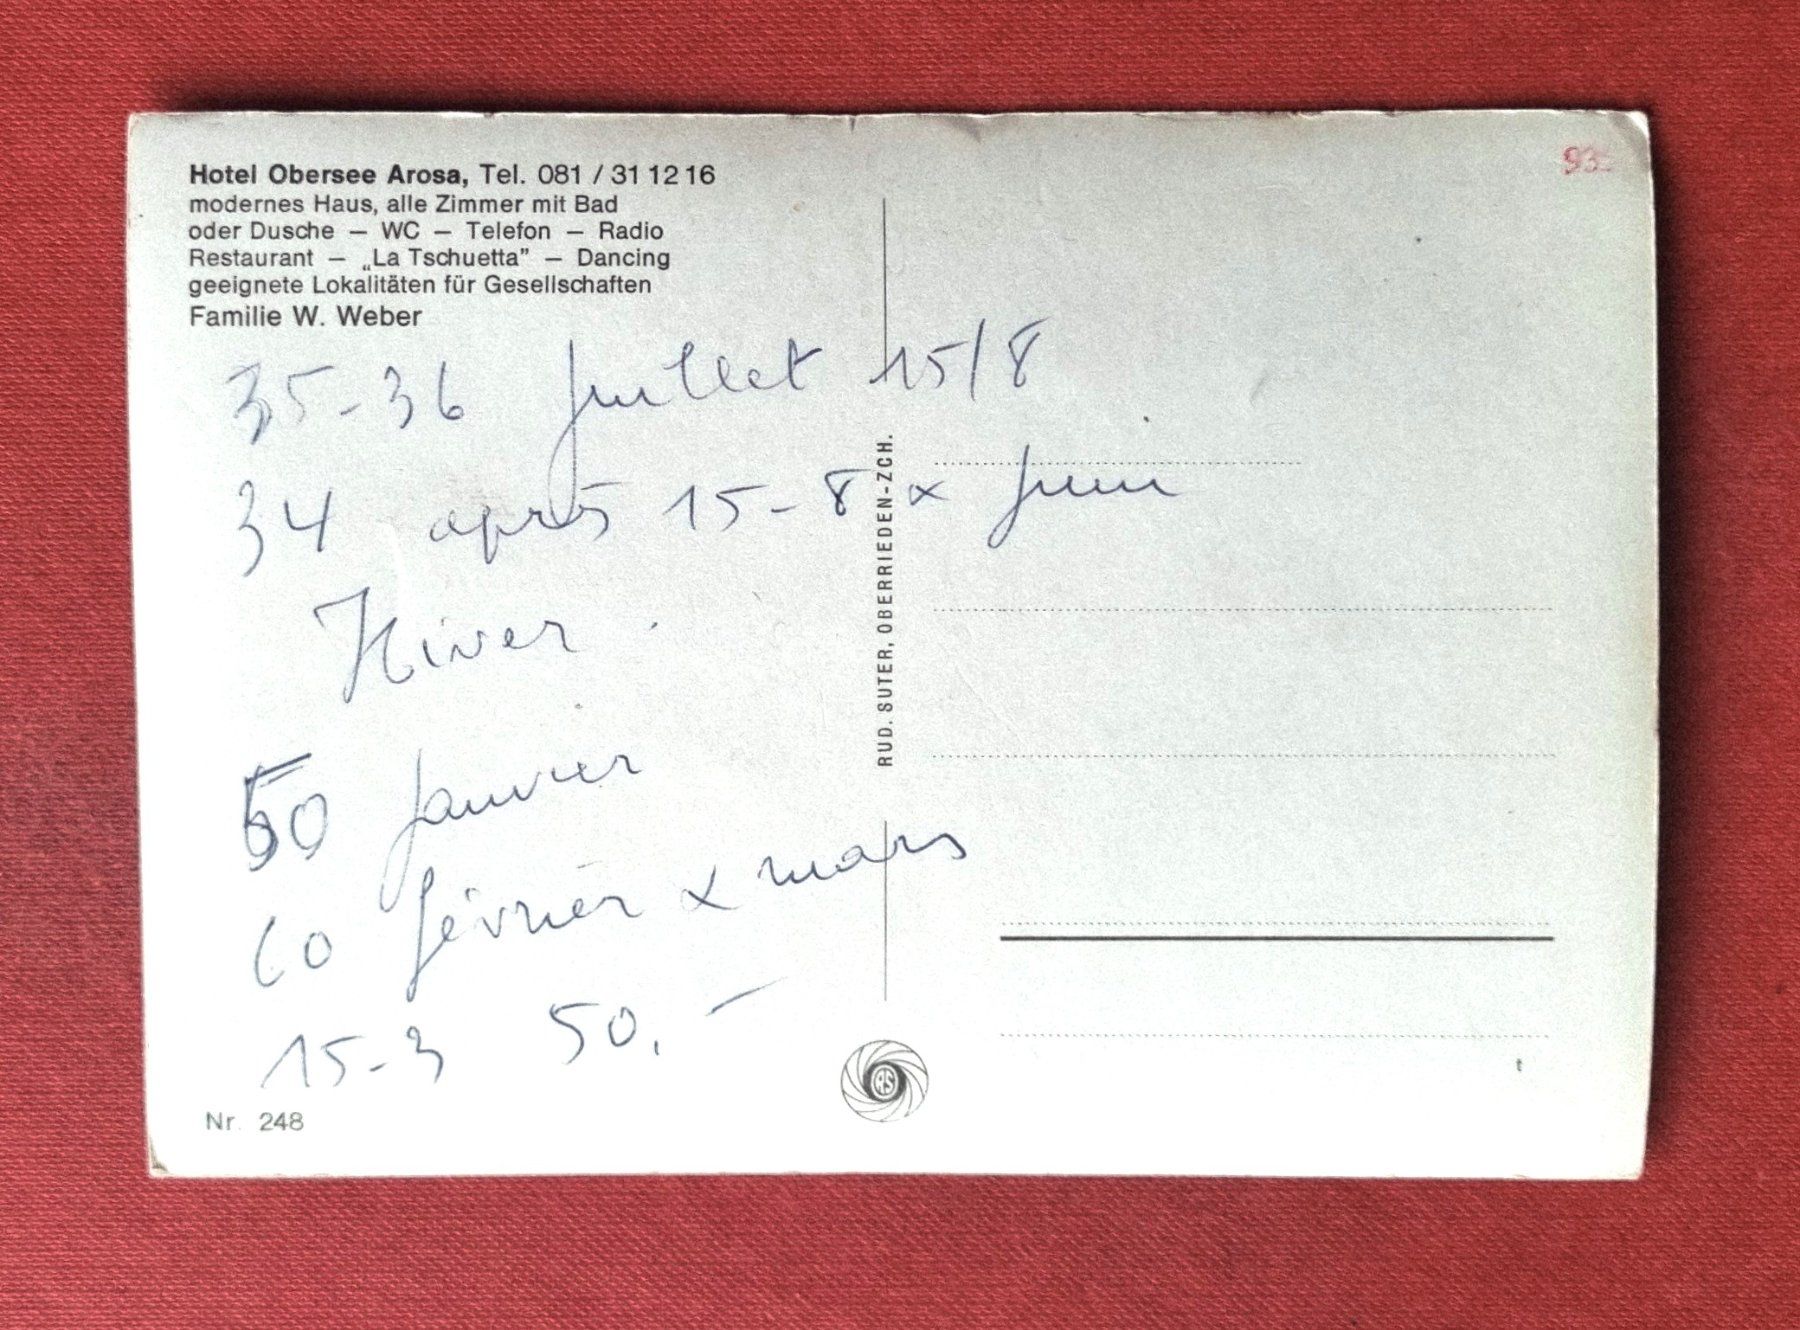 Hotel Obersee Arosa, Tel. 081 / 31 12 16
modernes Haus, alle Zimmer mit Bad
oder Dusche — WC — Telefon — Radio
Restaurant — „La Tschuetta” — Dancing
geeignete Lokalitäten für Gesellschaften
Familie W. Weber
35-36 Juillet 15/8
34 après 15-8 & Juin
Hiver.
50 Janvier
60 février & mars
15-3 50.—
Nr. 248
RUD. SUTER, OBERRIEDEN-ZCH.
RS
t